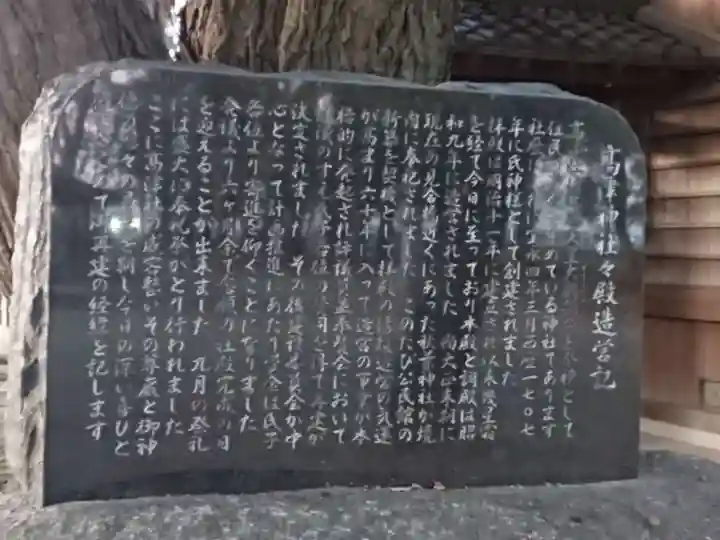 高津神社々殿造営記
として
住民の めている神社であります
社 宝永四年三月西歴一七〇七
年に氏神社として創建されました
拝殿は明治十一年に建立され以来 星霜
を経て今日に至っており本殿と調殿は昭
和九年に造営されました 尚大正末期に
現在の見合橋近くにあった秋葉神社が境
内に奉祀されました このたび公民館の
新築を契機として社殿の 造営の気運
が高まり六十年に入って造営の事が本
格的に発起され 会において
の 再建が
決定されました その後建設委員会が中
心となって計画推進にあたり資金は氏子
各位より寄進を仰ぐことになりました
発議より六ヶ月余で念願の社殿完成の日
を迎えることが出来ました 九月の祭礼
には盛大に奉祝祭がとり行われました
ここに高津社の威容整いその尊厳と御神
徳の 々の を刻し今日の深い喜びと
をこめて 再建の経緯を記します